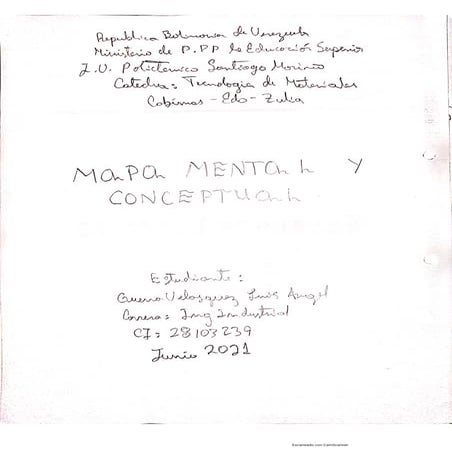 Republica Bolivariana de Venezuela
Ministerio de P.PP la Educación Superior
I.U. Politecnico Santiago Marino
Catedra: Tecnologia de Materiales
Cabimas - Edo - Zulia
MAPA MENTAL Y
CONCEPTUAL
Estudiante:
Guerra Velasquez Luis Angel
Carrera: Ing Industrial
CI: 28103239
Junio 2021
Escaneado con CamScanner